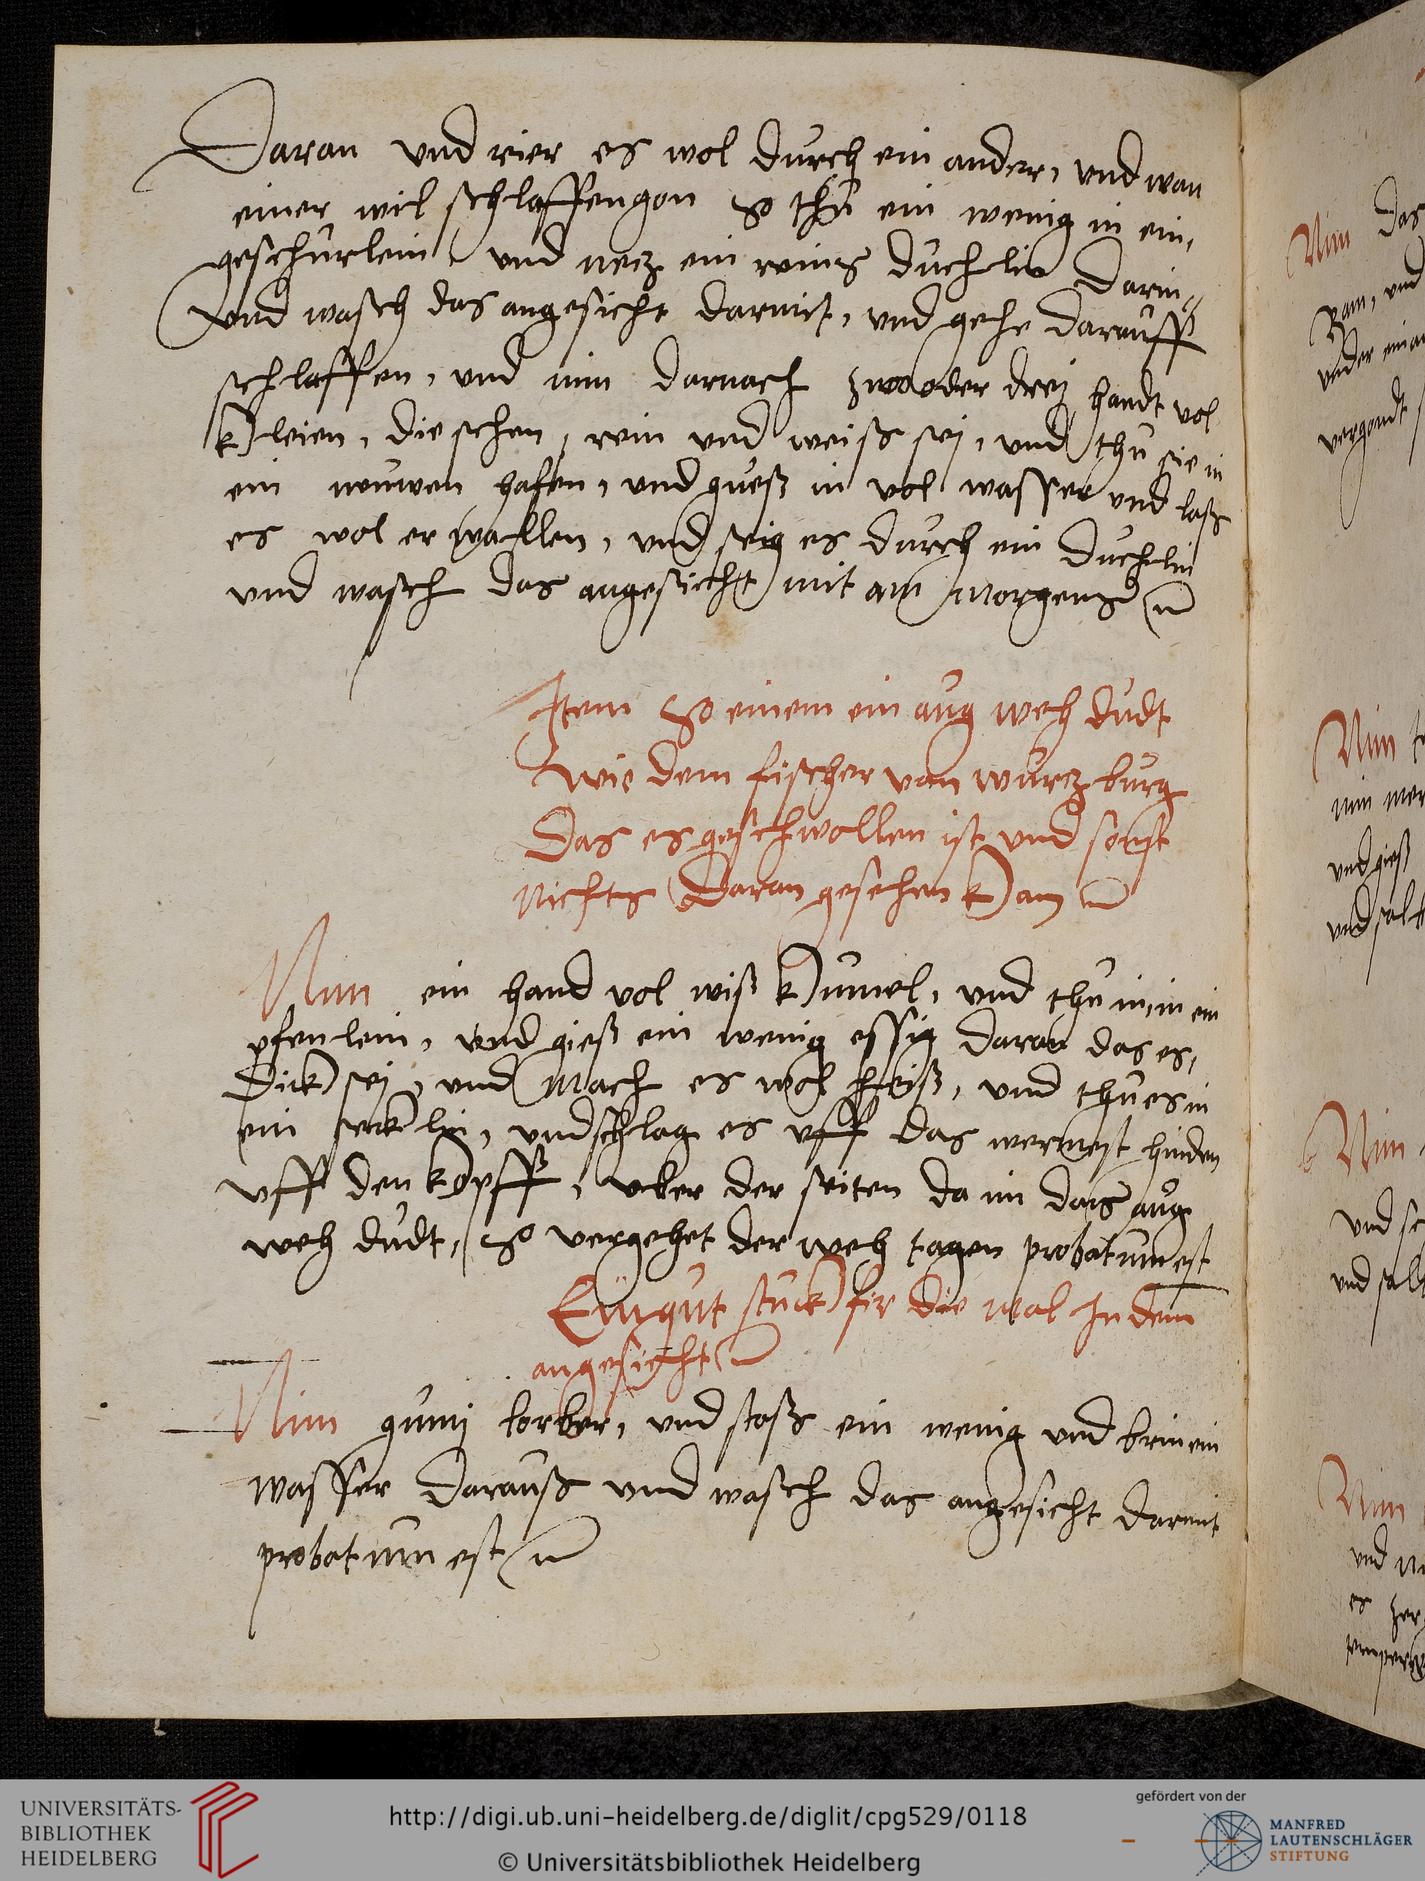 Daran und rier es wol durch ein ander, und wan
einer wil schlaffen gon So thu ein wenig in ein,
geschurlein, und necz ein reins duchlin darin,
Und wasch das angesicht darmit, und gehe darauff
schlaffen, und nim darnach zwo oder drej handt vol
kleien, die schen, rein und weiß sej, und thu sie in
ein nuwen hafen, und gueß in vol wasser und laß
es wol erwallen, und seig es durch ein duchlin
und wasch das angesicht mit am morgens
Item So einem ein aug weh dudt
Wie dem fischer von wurczburg
Das es geschwollen ist und sonst
nichts daran gesehen kam
Nim ein hand vol wiß kumel, und thu in, in ein
pfenlein, und gieß ein wenig essig daran das es,
dick sej, und mach es wol heiß, und thu es in
ein secklin, und schlag es uff das wermest hinden
uff den kopff, uber der seiten da im das aug
weh dudt, So vergehet der weh tagen probatum est
Ein gut stuck fir die mal In dem
angesicht
Nim gumj lorber, und stoß ein wenig und brin ein
wasser darauß und wasch das angesicht darmit
probatum est
Nim das
und
under einan
vergondt
Nim
nim
und gieß
und salb
Nim
und
und salb
Nim
und
es
UNIVERSITÄTS-
BIBLIOTHEK
HEIDELBERG
http://digi.ub.uni-heidelberg.de/diglit/cpg529/0118
© Universitätsbibliothek Heidelberg
gefördert von der
MANFRED
LAUTENSCHLÄGER
STIFTUNG